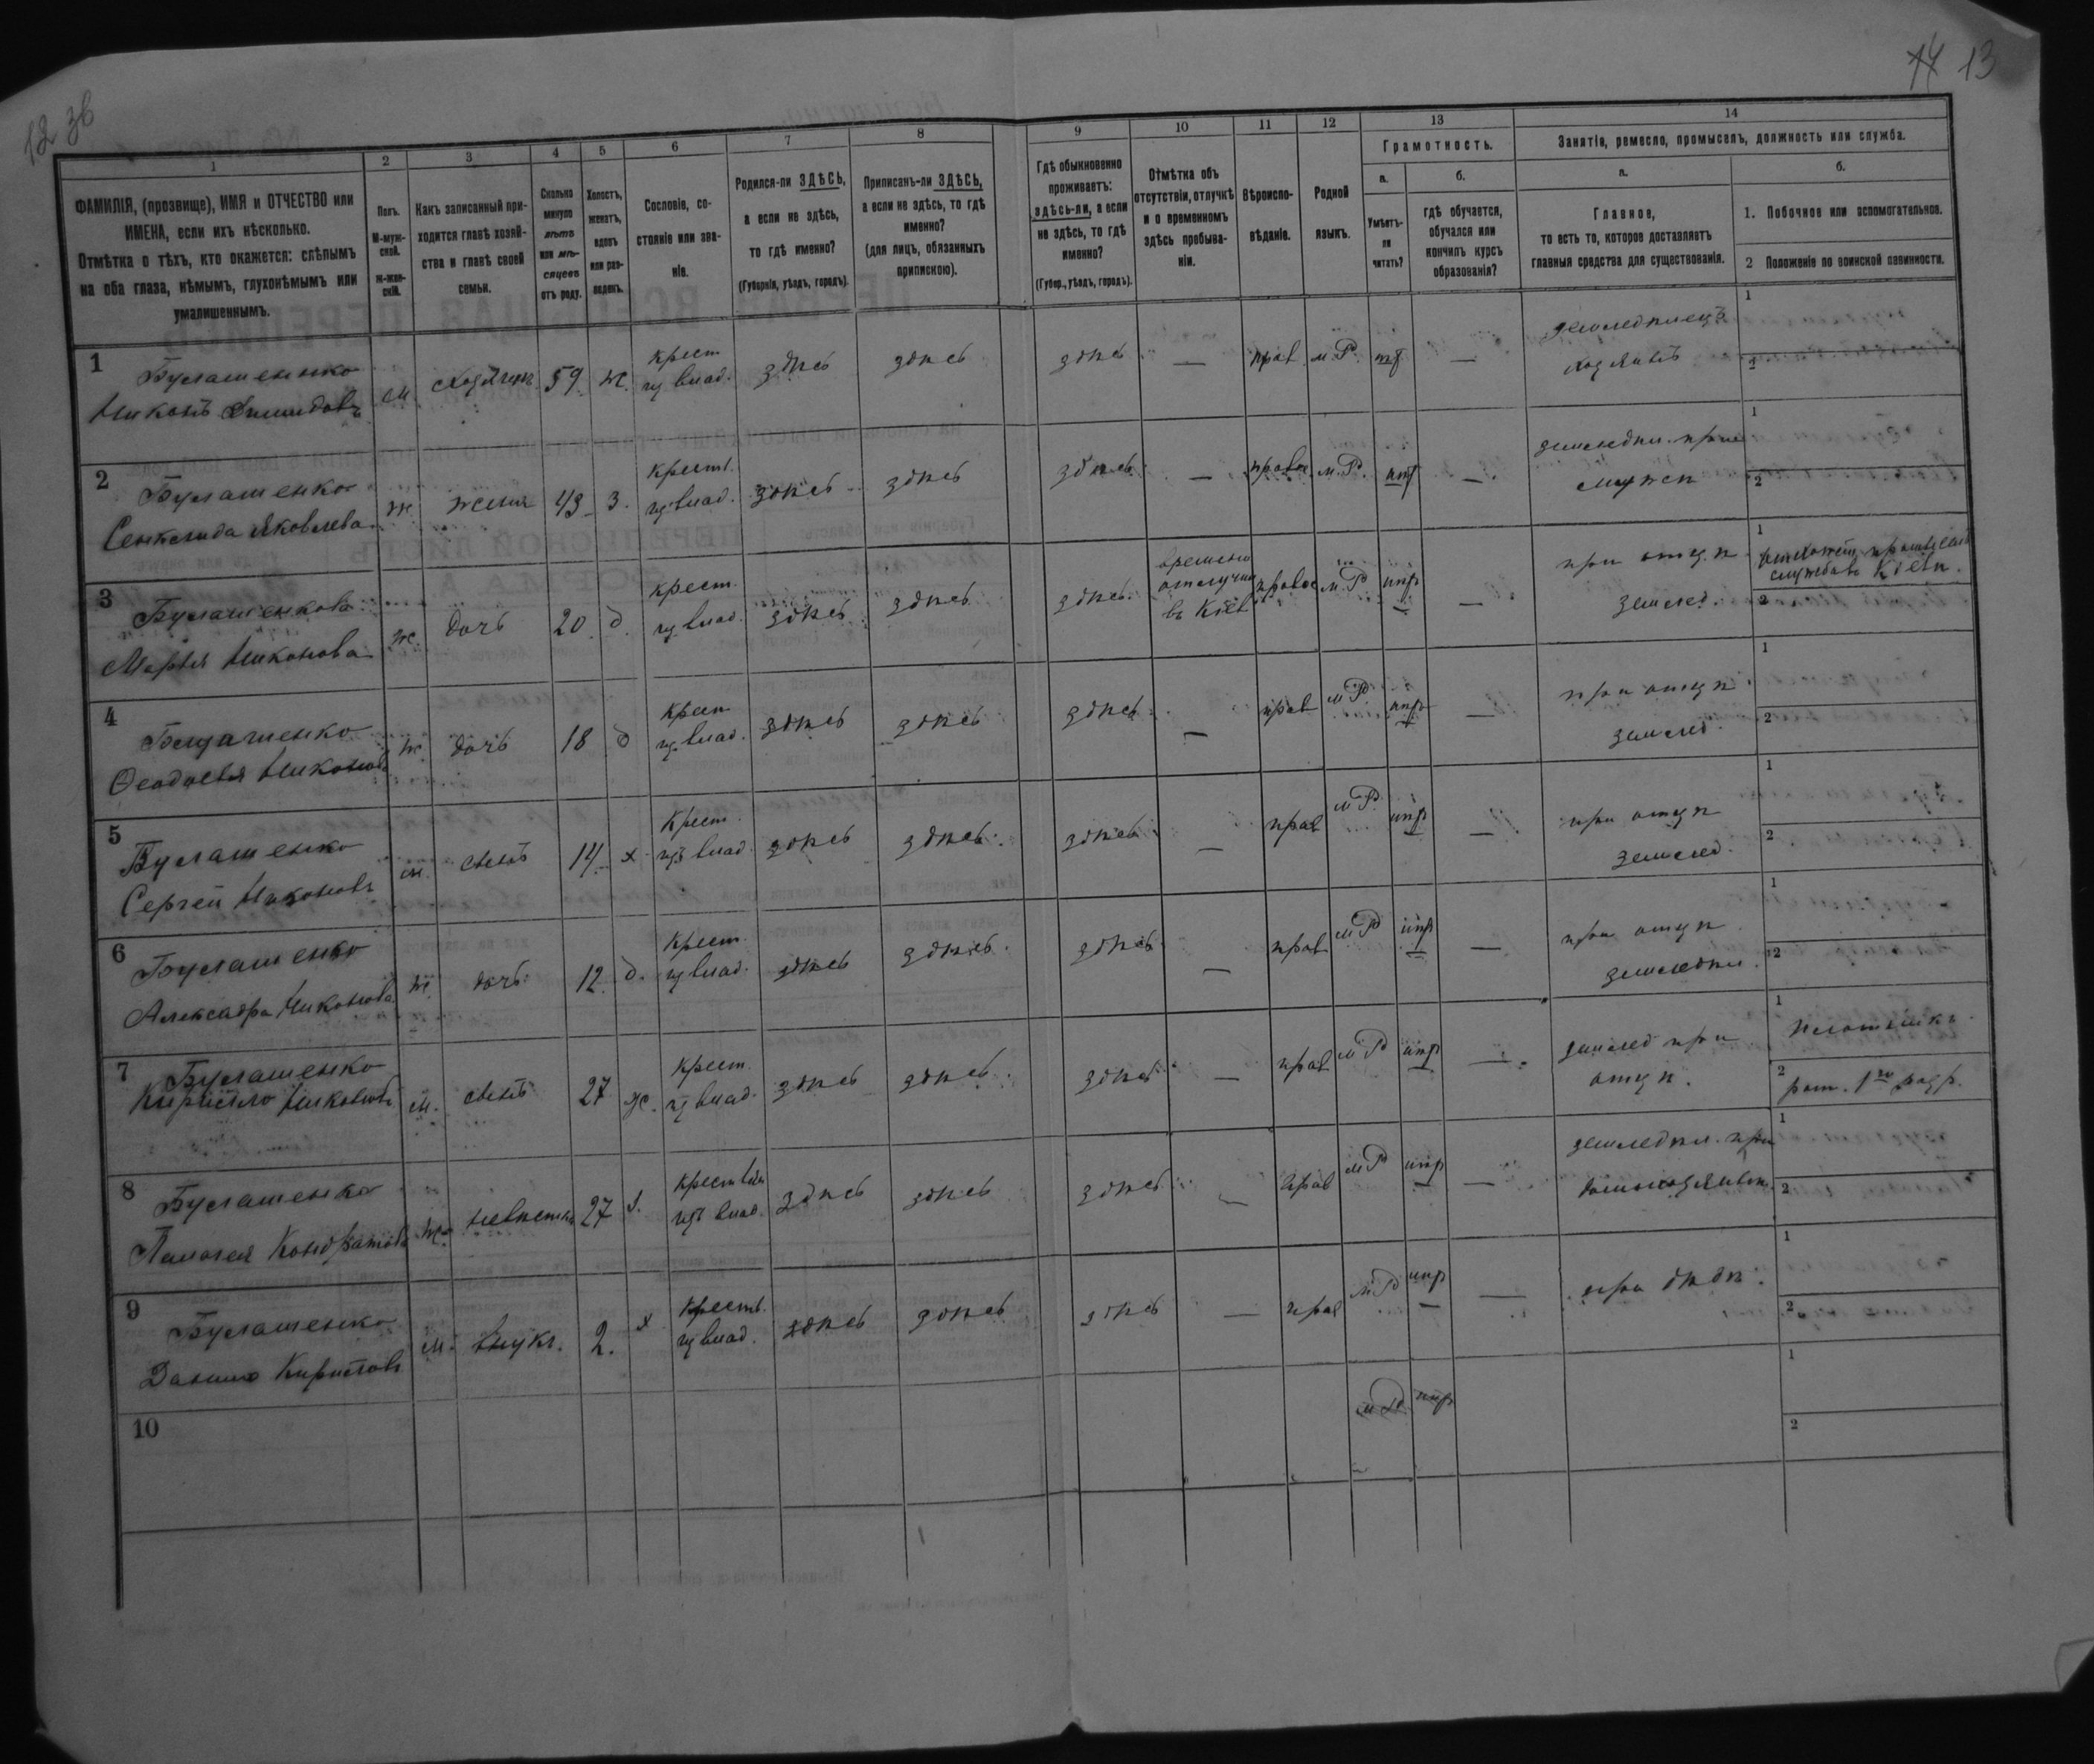 12 зв
14 13
1
2
3
4
5
6
7
8
9
10
11
12
13
14
ФАМИЛІЯ, (прозвище), ИМЯ и ОТЧЕСТВО или
ИМЕНА, если ихъ нѣсколько.
Отмѣтка о тѣхъ, кто окажется: слѣпымъ
на оба глаза, нѣмымъ, глухонѣмымъ или
умалишеннымъ.
Полъ.
М-муж-
ской.
Ж-жен-
скій.
Какъ записанный при-
ходится главѣ хозяй-
ства и главѣ своей
семьи.
Сколько
минуло
лѣтъ
или мѣ-
сяцевъ
отъ роду.
Холостъ,
женатъ,
вдовъ
или раз-
веденъ.
Сословіе, со-
стояніе или зва-
ніе.
Родился-ли ЗДѢСЬ,
а если не здѣсь,
то гдѣ именно?
(Губернія, уѣздъ, городъ).
Приписанъ-ли ЗДѢСЬ,
а если не здѣсь, то гдѣ
именно?
(для лицъ, обязанныхъ
припискою).
Гдѣ обыкновенно
проживаетъ:
здѣсь-ли, а если
не здѣсь, то гдѣ
именно?
(Губер., уѣздъ, городъ).
Отмѣтка объ
отсутствіи, отлучкѣ
и о временномъ
здѣсь пребыва-
ніи.
Вѣроиспо-
вѣданіе.
Родной
языкъ.
Грамотность.
а.
Умѣетъ-
ли
читать?
б.
гдѣ обучается,
обучался или
кончилъ курсъ
образованія?
Занятіе, ремесло, промыселъ, должность или служба.
а.
Главное,
то есть то, которое доставляетъ
главныя средства для существованія.
б.
1. Побочное или вспомогательное.
2 Положеніе по воинской повинности.
1 Булашенко крест земледѣлецъ 1
Никонъ м 59 ж. изъ влад. здѣсь здѣсь здѣсь — прав м.Р. — хозяинъ 2
2 Булашенко крест. земледѣл. при 1
Яковлева ж жена 43 з. изъ влад. здѣсь здѣсь здѣсь — правос м.Р. — мужѣ 2
3 Булашенкова крест. временно при отцѣ 1
Марья Никонова ж. дочь 20 д. изъ влад. здѣсь здѣсь здѣсь въ Кіев правос м.Р — землед. Кіевѣ. 2
4 Булашенко крест при отцѣ 1
Ѳеодосія Никонов ж дочь 18 д изъ влад. здѣсь здѣсь здѣсь — прав м Р — землед. 2
5 Булашенко крест. при отцѣ 1
Сергей Никоновъ м. сынъ 14 х изъ влад. здѣсь здѣсь здѣсь — прав м Р — землед. 2
6 Булашенко крест. при отцѣ 1
Алексадра Никонова ж. дочь 12 д. изъ влад. здѣсь здѣсь здѣсь — прав м Р — земледѣл. 2
7 Булашенко крест. землед при 1 плотникъ
Никоновъ м. сынъ 27 ж. изъ влад. здѣсь здѣсь здѣсь — прав м Р — отцѣ. 2 рат. 1го разр.
8 Булашенко земледѣл. при 1
Кондратова ж невѣстка 27 з. изъ влад. здѣсь здѣсь здѣсь — прав м Р — 2
9 Булашенко крест. 1
Данило м. внукъ. 2. х изъ влад. здѣсь здѣсь здѣсь — прав м Р — при дѣдѣ. 2
10 м Р 1
2